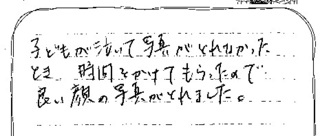 子どもが泣いて写真がとれなかった
とき 時間をかけてもらったので
良い顔の写真がとれました。